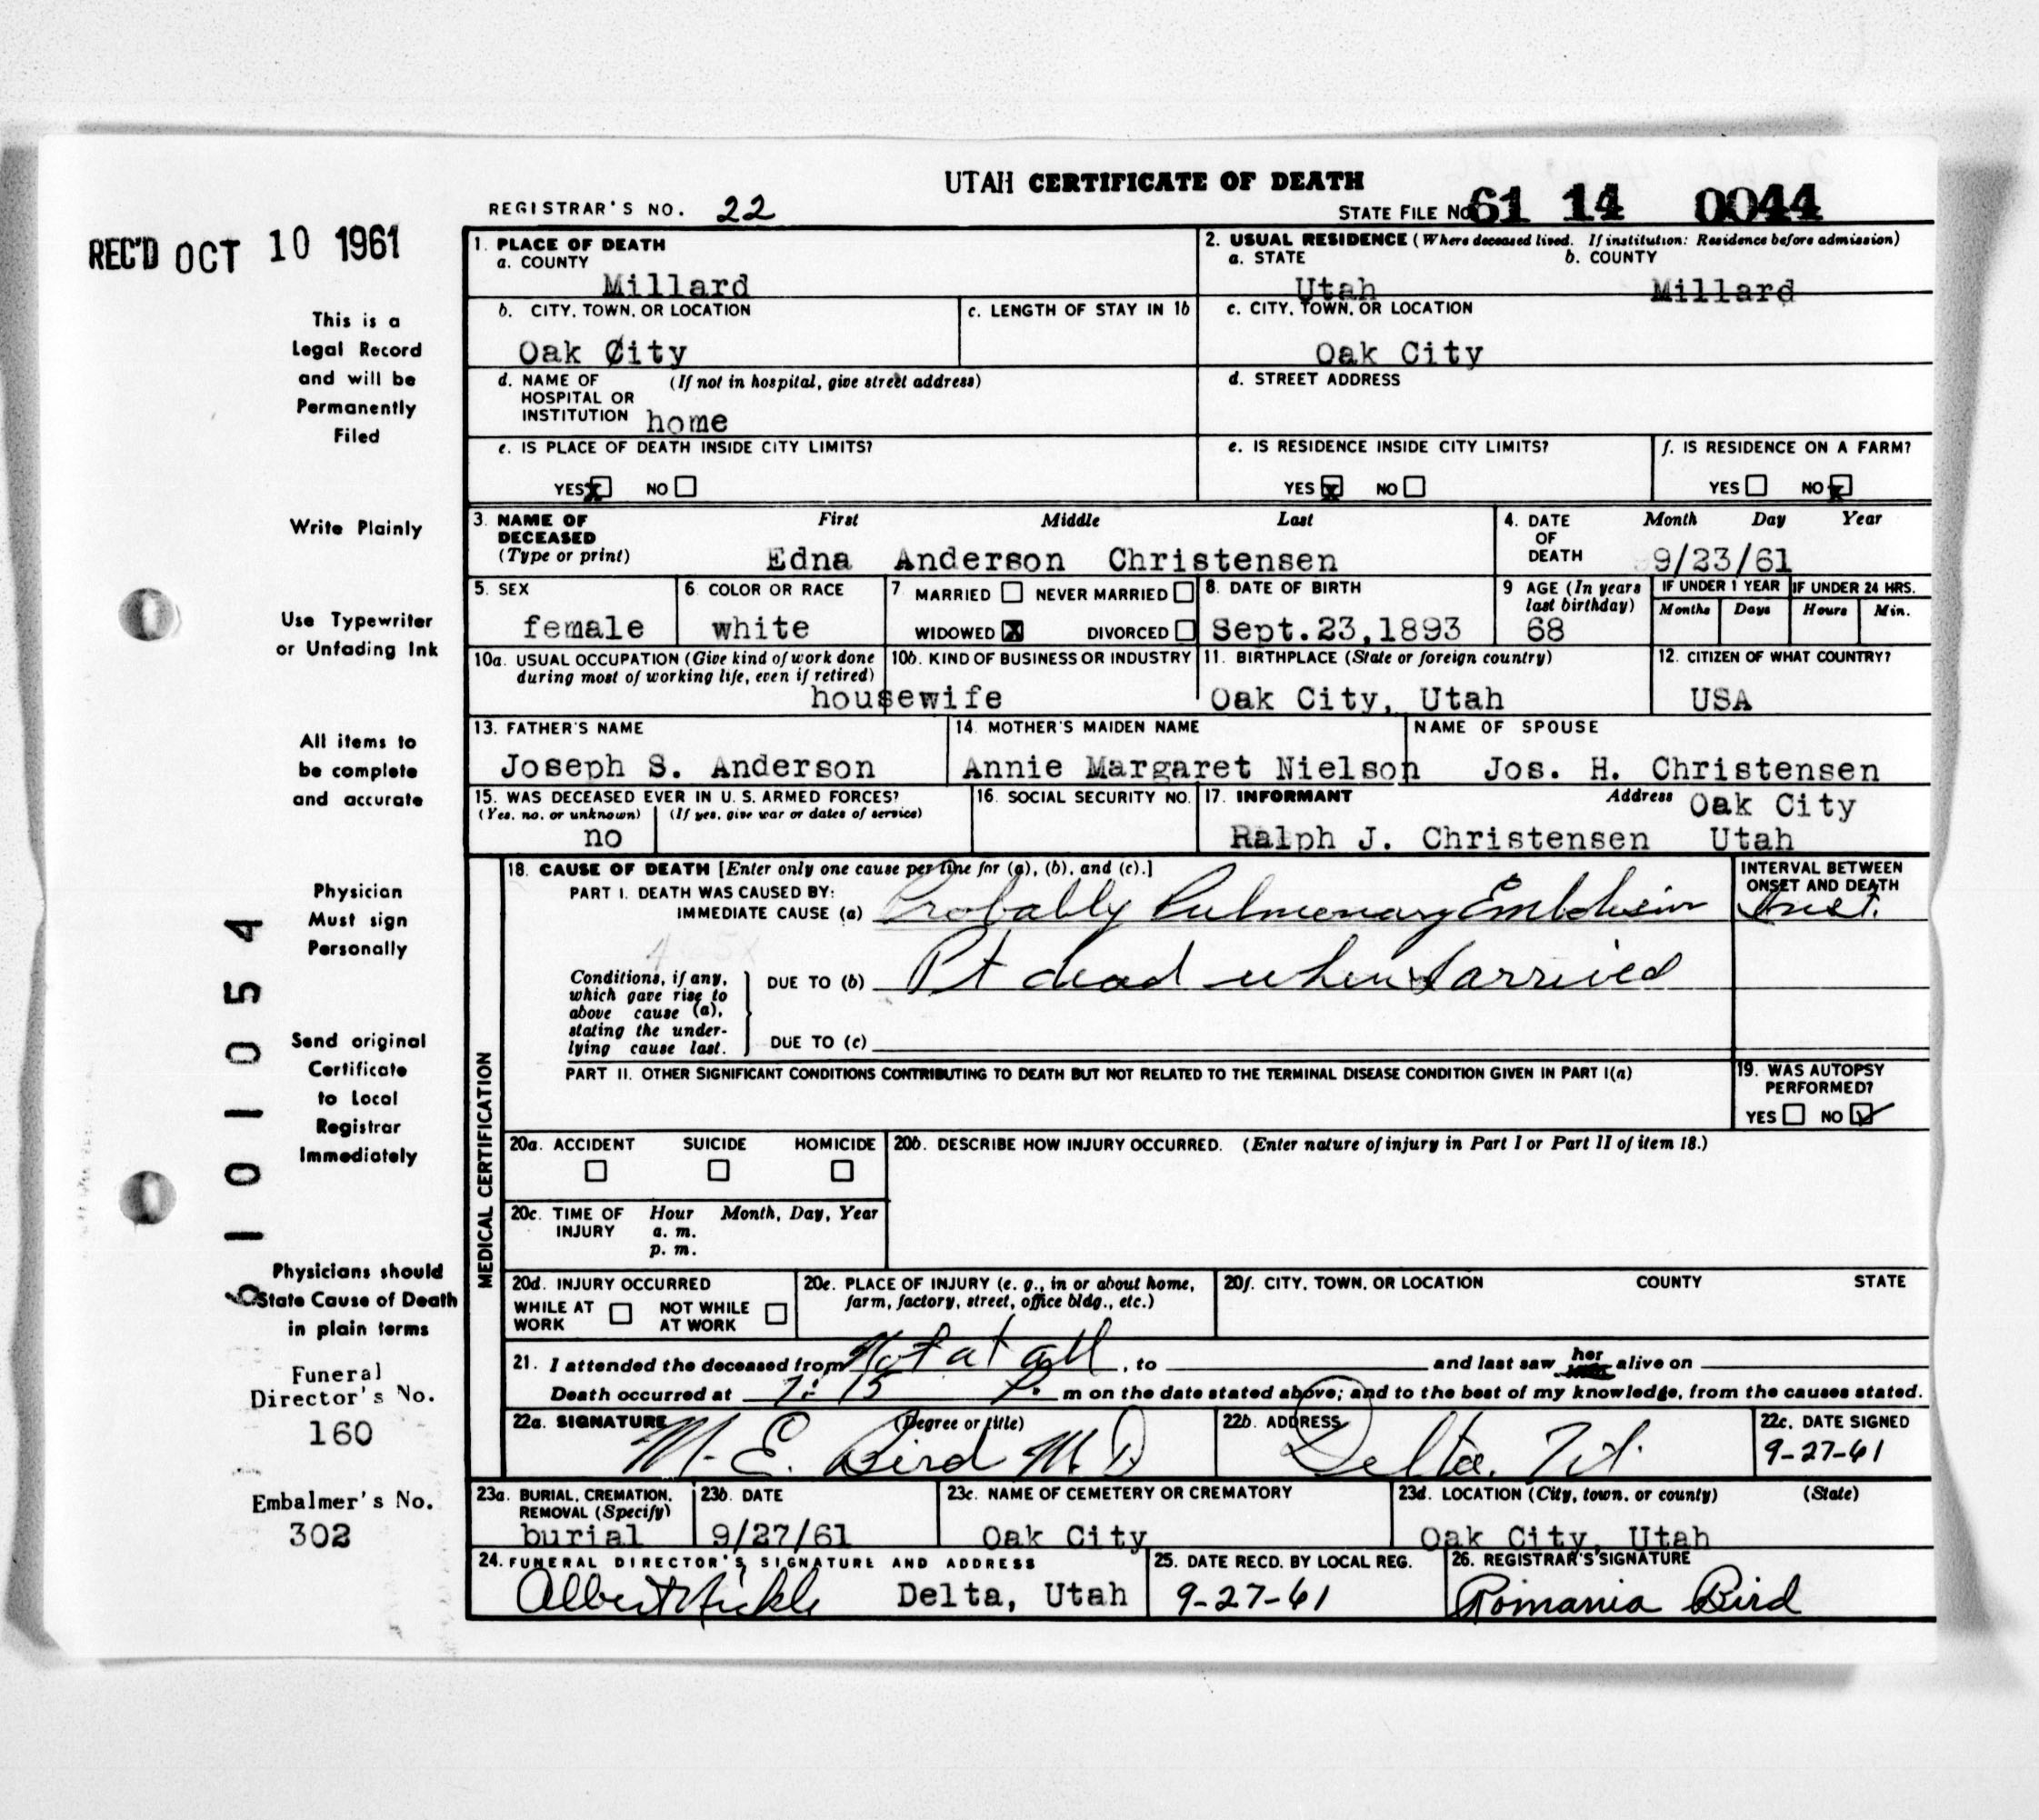 UTAH CERTIFICATE OF DEATH
REGISTRAR'S NO. 22
STATE FILE No 61 14 0044
REC'D OCT 10 1961
1. PLACE OF DEATH
a. COUNTY
Millard
2. USUAL RESIDENCE (Where deceased lived. If institution: Residence before admission)
a. STATE b. COUNTY
Utah Millard
b. CITY, TOWN, OR LOCATION
Oak City
c. LENGTH OF STAY IN 1b
c. CITY, TOWN, OR LOCATION
Oak City
d. NAME OF (If not in hospital, give street address)
HOSPITAL OR
INSTITUTION home
d. STREET ADDRESS
e. IS PLACE OF DEATH INSIDE CITY LIMITS?
YES x NO
e. IS RESIDENCE INSIDE CITY LIMITS?
YES x NO
f. IS RESIDENCE ON A FARM?
YES NO x
3. NAME OF First Middle Last
DECEASED
(Type or print) Edna Anderson Christensen
4. DATE Month Day Year
OF
DEATH 9/23/61
5. SEX
female
6. COLOR OR RACE
white
7 MARRIED NEVER MARRIED
WIDOWED x DIVORCED
8. DATE OF BIRTH
Sept.23,1893
9 AGE (In years
last birthday)
68
IF UNDER 1 YEAR IF UNDER 24 HRS.
Months Days Hours Min.
10a. USUAL OCCUPATION (Give kind of work done
during most of working life, even if retired)
housewife
10b. KIND OF BUSINESS OR INDUSTRY
11. BIRTHPLACE (State or foreign country)
Oak City, Utah
12. CITIZEN OF WHAT COUNTRY?
USA
13. FATHER'S NAME
Joseph S. Anderson
14. MOTHER'S MAIDEN NAME
Annie Margaret Nielson
NAME OF SPOUSE
Jos. H. Christensen
15. WAS DECEASED EVER IN U. S. ARMED FORCES?
(Yes, no, or unknown) (If yes, give war or dates of service)
no
16. SOCIAL SECURITY NO.
17. INFORMANT Address Oak City
Ralph J. Christensen Utah
MEDICAL CERTIFICATION
18. CAUSE OF DEATH [Enter only one cause per line for (a), (b), and (c).]
PART I. DEATH WAS CAUSED BY:
IMMEDIATE CAUSE (a) Probably Pulmonary Embolism
INTERVAL BETWEEN
ONSET AND DEATH
Inst.
Conditions, if any,
which gave rise to
above cause (a),
stating the under-
lying cause last.
DUE TO (b) Pt dead when I arrived
DUE TO (c)
PART II. OTHER SIGNIFICANT CONDITIONS CONTRIBUTING TO DEATH BUT NOT RELATED TO THE TERMINAL DISEASE CONDITION GIVEN IN PART I(a)
19. WAS AUTOPSY
PERFORMED?
YES NO ✓
20a. ACCIDENT SUICIDE HOMICIDE
20b. DESCRIBE HOW INJURY OCCURRED. (Enter nature of injury in Part I or Part II of item 18.)
20c. TIME OF Hour Month, Day, Year
INJURY a. m.
p. m.
20d. INJURY OCCURRED
WHILE AT NOT WHILE
WORK AT WORK
20e. PLACE OF INJURY (e. g., in or about home,
farm, factory, street, office bldg., etc.)
20f. CITY, TOWN, OR LOCATION COUNTY STATE
21. I attended the deceased from Not at all, to and last saw her alive on
Death occurred at 7:15 P. m on the date stated above; and to the best of my knowledge, from the causes stated.
22a. SIGNATURE (Degree or title)
M. E. Bird M. D
22b. ADDRESS
Delta, Ut.
22c. DATE SIGNED
9-27-61
23a. BURIAL, CREMATION,
REMOVAL (Specify)
burial
23b. DATE
9/27/61
23c. NAME OF CEMETERY OR CREMATORY
Oak City
23d. LOCATION (City, town, or county) (State)
Oak City, Utah
24. FUNERAL DIRECTOR'S SIGNATURE AND ADDRESS
Albert Nickle Delta, Utah
25. DATE RECD. BY LOCAL REG.
9-27-61
26. REGISTRAR'S SIGNATURE
Romania Bird
This is a
Legal Record
and will be
Permanently
Filed
Write Plainly
Use Typewriter
or Unfading Ink
All items to
be complete
and accurate
Physician
Must sign
Personally
Send original
Certificate
to Local
Registrar
Immediately
Physicians should
State Cause of Death
in plain terms
Funeral
Director's No.
160
Embalmer's No.
302